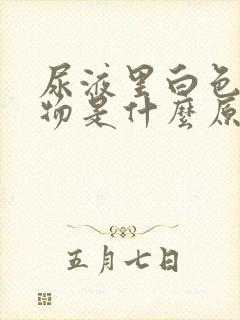 尿液里白色
物是什麼原
五月七日